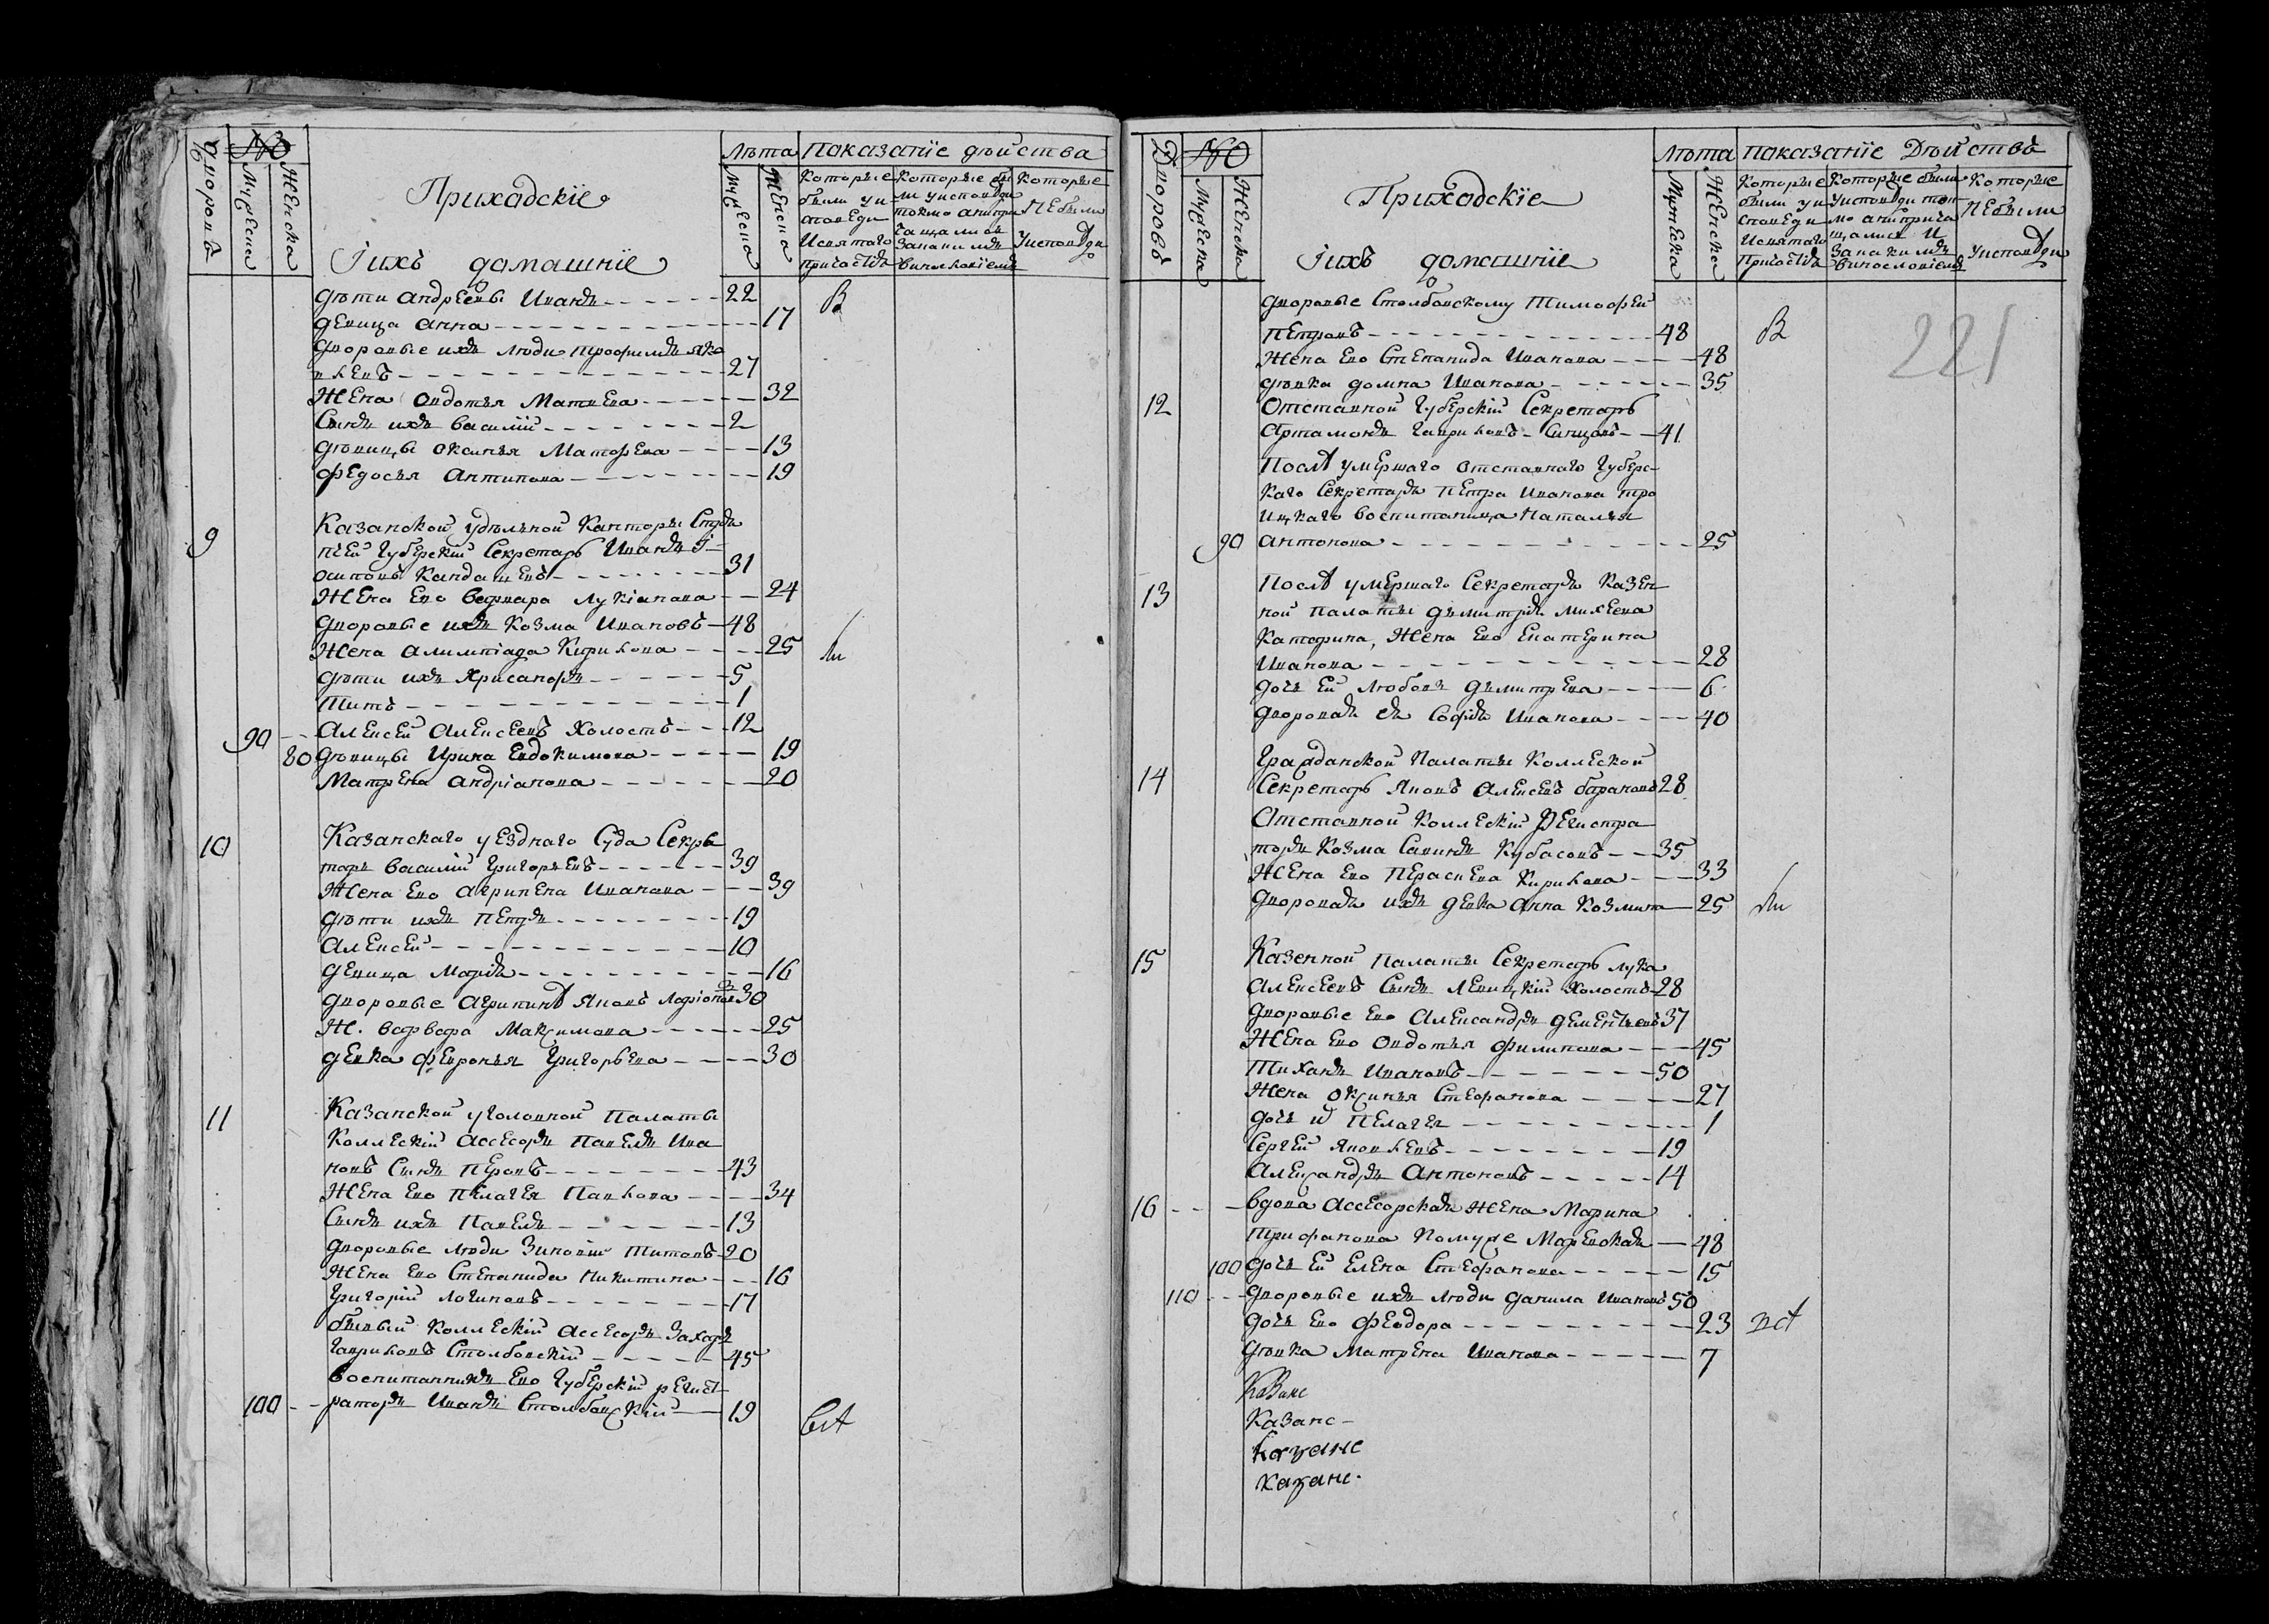 дворовъ
№
Мужеска
Женска
Прихадскіе
Іихъ домашніе
лѣта
Мужеска
Женска
показаніе дѣйства
Которые были у исповеди и святаго причастія
Которые бы
ли у исповѣди
токмо а не при
чащалися
за каким
винословіем
Которые
не были
у исповѣди
дѣти андреевы Иванъ 22
девица анна 17 В
дворовые ихъ люди трофимъ яко
влевъ 27
жена Овдотья Матвева 32
Сынъ ихъ василій 2
дѣвицы оксинья Матфева 13
федосья Антипова 19
9 Казанской удѣльной канторы Стря
пчей губерскій Секретарь Иванъ І
осиповъ Кандашевъ 31
жена ево варвара лукіанова 24
дворовые ихъ Козма Ивановъ 48
жена алимпіада Кирилова 25
дѣти ихъ Хрисанфъ 5
Титъ 1
90 Алексей Алексеевъ холостъ 12
80 дѣвицы Ирина Евдокимова 19
Матрена андріанова 20
10 Казанскаго уезднаго Суда Секре
тарь василій григорьевъ 39
Жена ево агрипена Иванова 39
дѣти ихъ петръ 19
Алексей 10
девица Марія 16
дворовые агрипинѣ яковъ Ларіонов 30
Ж. варвара Максимова 25
девка февронья григорьева 30
11 Казанской уголовной палаты
Коллескій ассесоръ павелъ Ива
новъ Сынъ перовъ 43
жена ево пелагея павлова 34
Сынъ ихъ павелъ 13
дворовые люди Зиновій титовъ 20
жена ево Степанида Никитина 16
григорій логиновъ 17
бывый коллескій ассесоръ Захаръ
гавриловъ Столбовскій 45
воспитанникъ ево губерскій регист
100 раторъ Иванъ Столбовскій 19 вст
Дворовъ
№
Мужеска
Женска
Прихадскіе
Іихъ домашніе
лѣта
Мужеска
Женска
показаніе Дѣйствъ
Которые
были у и
споведи
и святаго
причастія
Которые были
у исповѣди ток
мо а не прича
щалися и
за каким
винословіем
Которые
не были
у исповѣди
221
дворовые Столбовскому Тимофей
петровъ 48 В
жена ево Степанида Иванова 48
дѣвка домна Иванова 35
12 Отставной губерскій Секретарь
Артамонъ гавриловъ Синцовъ 41
послѣ умершаго отставнаго губерс
каго Секретаря петра Иванова тро
ицкаго воспитаница Наталья
90 антонова 25
13 послѣ умершаго Секретаря Казен
ной палаты дьмитрія михеева
Катафина, жена ево Екатерина
Иванова 28
дочь ей любовь дьмитрева 6
дворовая ея Софія Иванова 40
гражданской палаты Коллеской
14 Секретарь яковъ Алексевъ барановъ 28
Отставной коллескій регистра
торъ Козма Савинъ Кубасовъ 35
жена ево перасиева Кирилова 33
дворовая ихъ девка анна Козмина 25
15 Казенной палаты Секретарь лука
алексеевъ Сынъ левицкій холостъ 28
дворовые ево Александръ дементьевъ 37
жена ево Овдотья филипова 45
Тиханъ Ивановъ 50
жена оксинья Стефанова 27
дочь и пелагея 1
Сергей яковлевъ 19
Александръ Антоновъ 14
16 вдова ассесорская жена Марина
трифанова по мужe Маревская 48
100 дочь ей елена Стефанова 15
110 дворовые ихъ люди данила Ивановъ 50
дочь ево феодора 23 вст
дѣвка Матрена Иванова 7
Казане
Казанс
Казане
Казане.